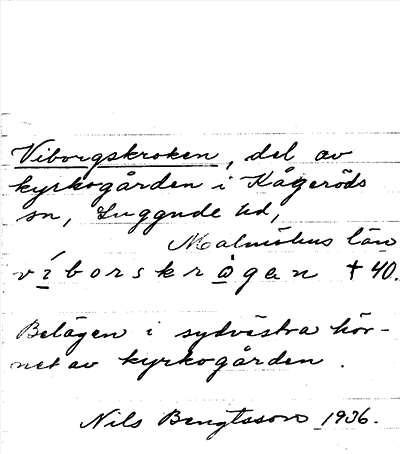 Viborgskroken, del av
kyrkogården i Kågeröds
sn, Luggude hd,
Malmöhus län
víborskrògen † 40.
Belägen i sydvästra hör-
net av kyrkogården.
Nils Bengtsson 1936.